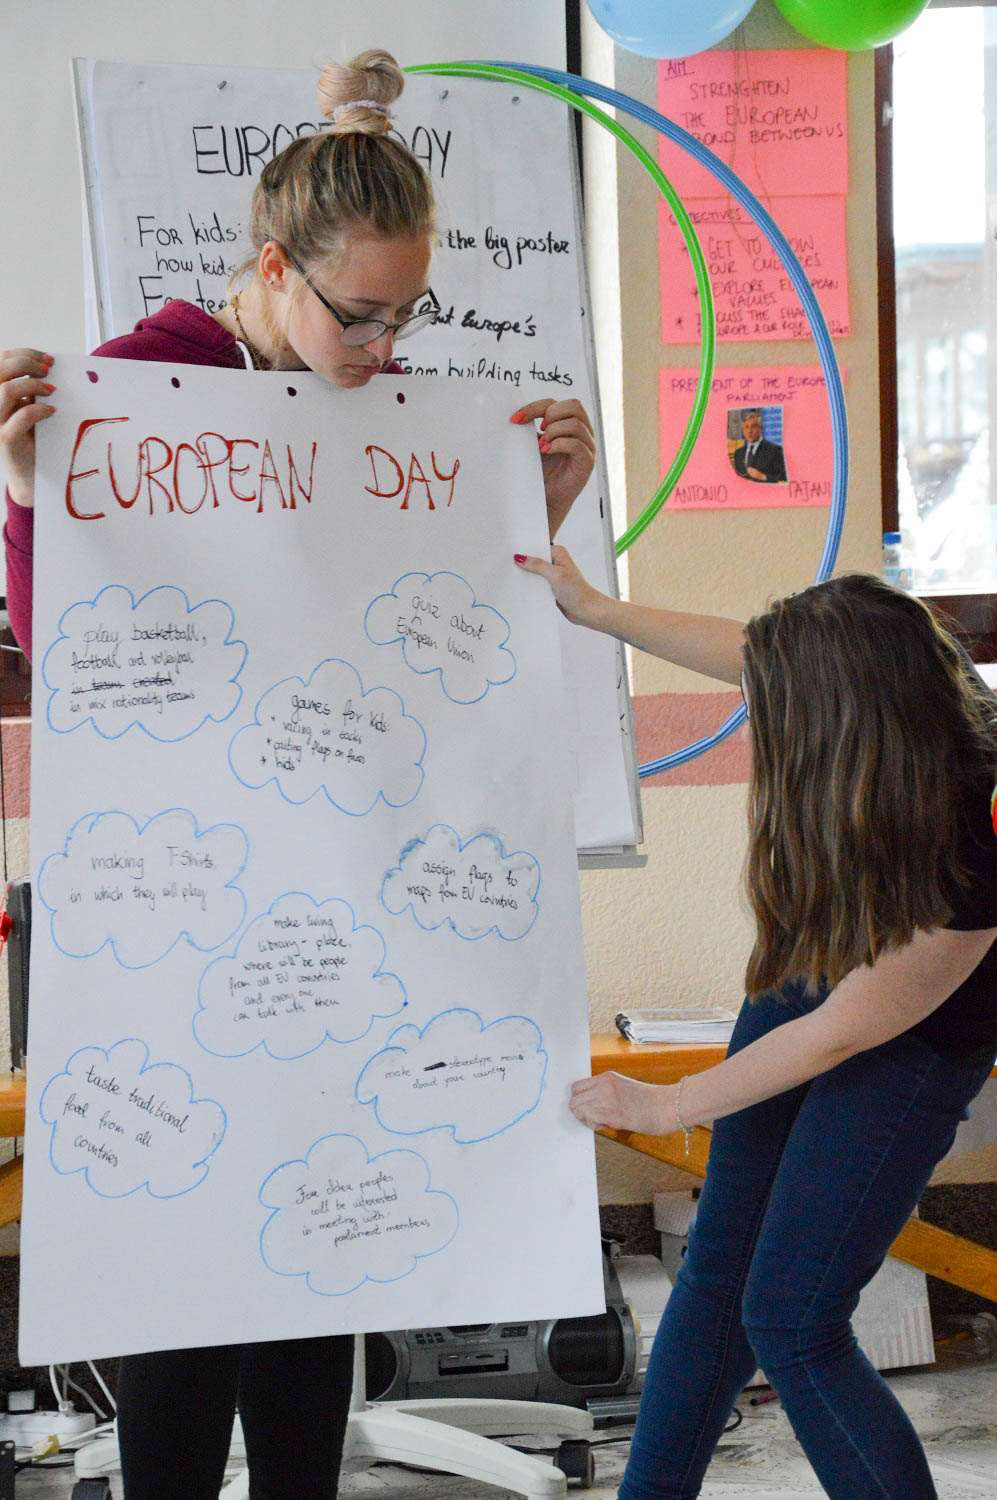 EUROPEAN DAY
play basketball,
football and volleyball
in teams created
in mix nationality teams
quiz about
European Union
games for kids:
* racing in sacks
* paiting flags on faces
* hids
making T-Shirts,
in which they will play
assign flags to
maps from EU countries
make living
library - place,
where will be people
from all EU countries
and every one
can talk with them
make stereotype movie
about your country
taste traditional
food from all
countries
For older peoples
will be interested
in meeting with
parlament members
EURO DAY
FOR kids: the big poster
how kids
For
Europe's
Team building tasks
AIM
STRENGHTEN
THE EUROPEAN
BOND BETWEEN US
OBJECTIVES
* GET TO KNOW
OUR CULTURES
* EXPLORE EUROPEAN
VALUES
* DISCUSS THE
EUROPE & OUR ROLE
PRESIDENT OF THE EUROPE
PARLIAMENT
ANTONIO TAJANI